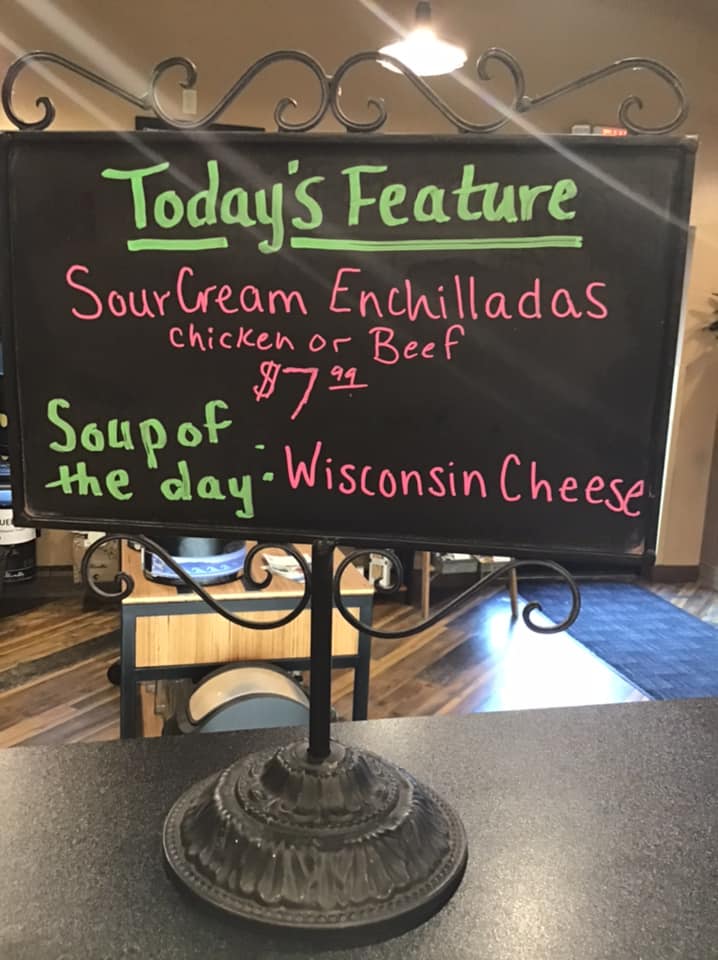 Today's Feature
Sour Cream Enchilladas
chicken or Beef
$7.99
Soup of
the day: Wisconsin Cheese